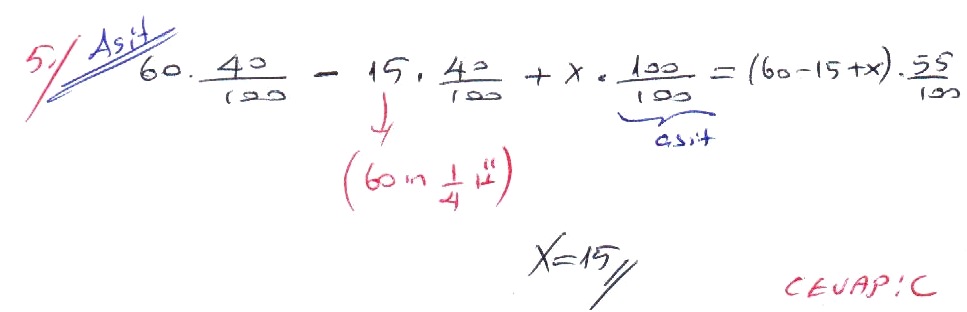 5./ Asit 60 . 40/100 - 15 . 40/100 + x . 100/100 = (60-15+x) . 55/100
asit
(60 ın 1/4 ü)
X=15//
CEVAP:C